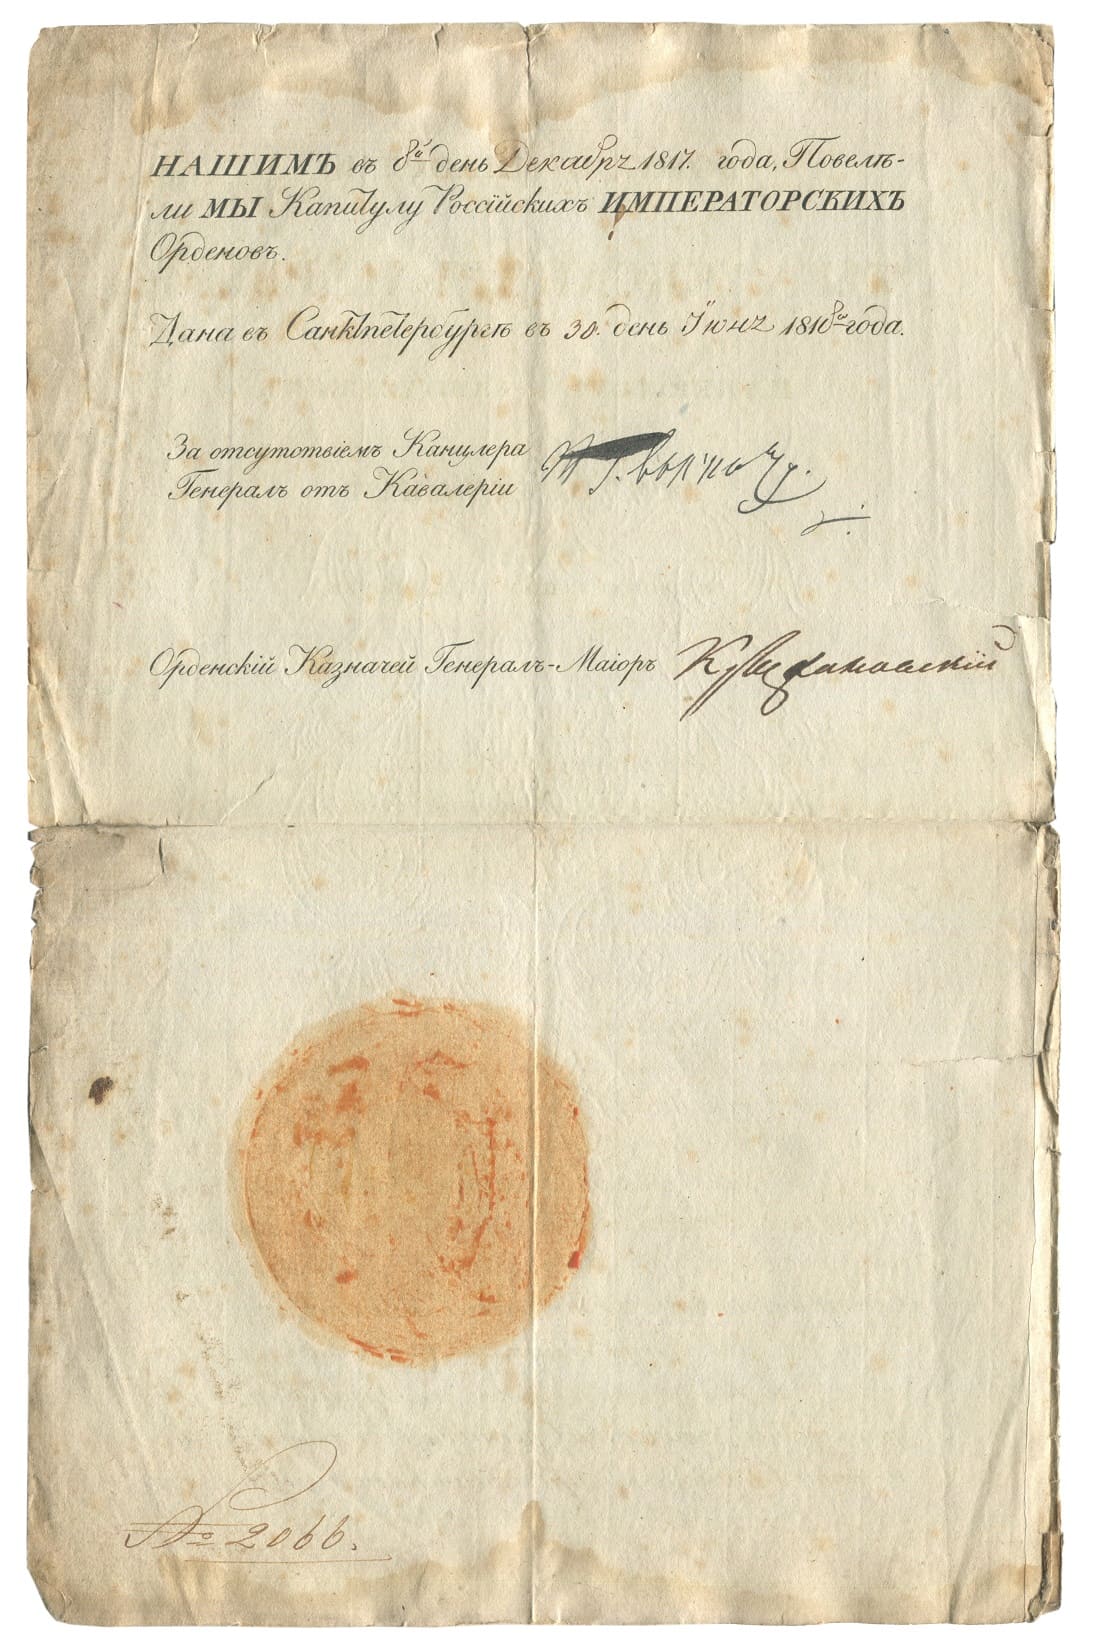 НАШИМЪ въ 8й день Декабря 1817. года, Повелѣ-
ли МЫ Капитулу Россїйскихъ ИМПЕРАТОРСКИХЪ
Орденовъ.
Дана въ Санктпетербургѣ въ 30. день Іюня 1818го года.
За отсутствіемъ Канцлера
Генералъ отъ Кавалеріи
Орденскій Казначей Генералъ-Маіоръ
№ 2066.